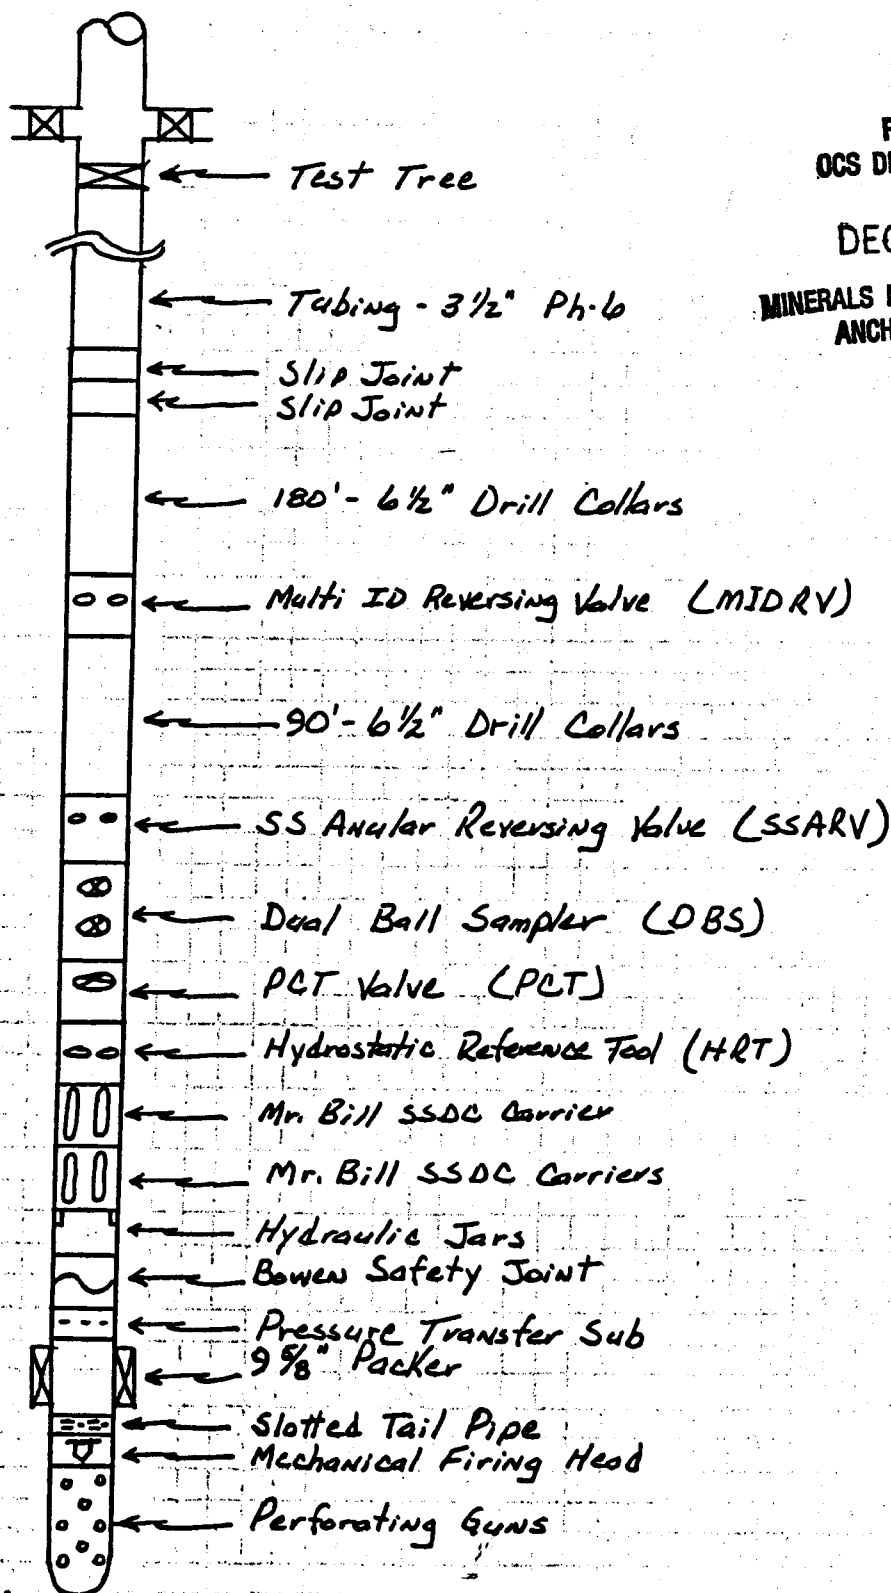 OCS
DEC
MINERALS
ANCH
Test Tree
Tubing - 3 1/2" Ph-6
Slip Joint
Slip Joint
180' - 6 1/2" Drill Collars
Multi ID Reversing Valve (MIDRV)
90' - 6 1/2" Drill Collars
SS Anular Reversing Valve (SSARV)
Dual Ball Sampler (DBS)
PCT Valve (PCT)
Hydrostatic Reference Tool (HRT)
Mr. Bill SSDC Carrier
Mr. Bill SSDC Carriers
Hydraulic Jars
Bowen Safety Joint
Pressure Transfer Sub
9 5/8" Packer
Slotted Tail Pipe
Mechanical Firing Head
Perforating Guns